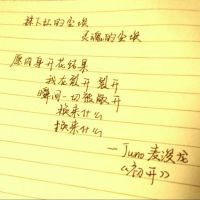 抹下坏的尘埃
灵魂的尘埃
原肉身开花结果
我在裂开 裂开
瞬间一切被敞开
换来什么
换来什么
— Juno 麦浚龙
《初开》